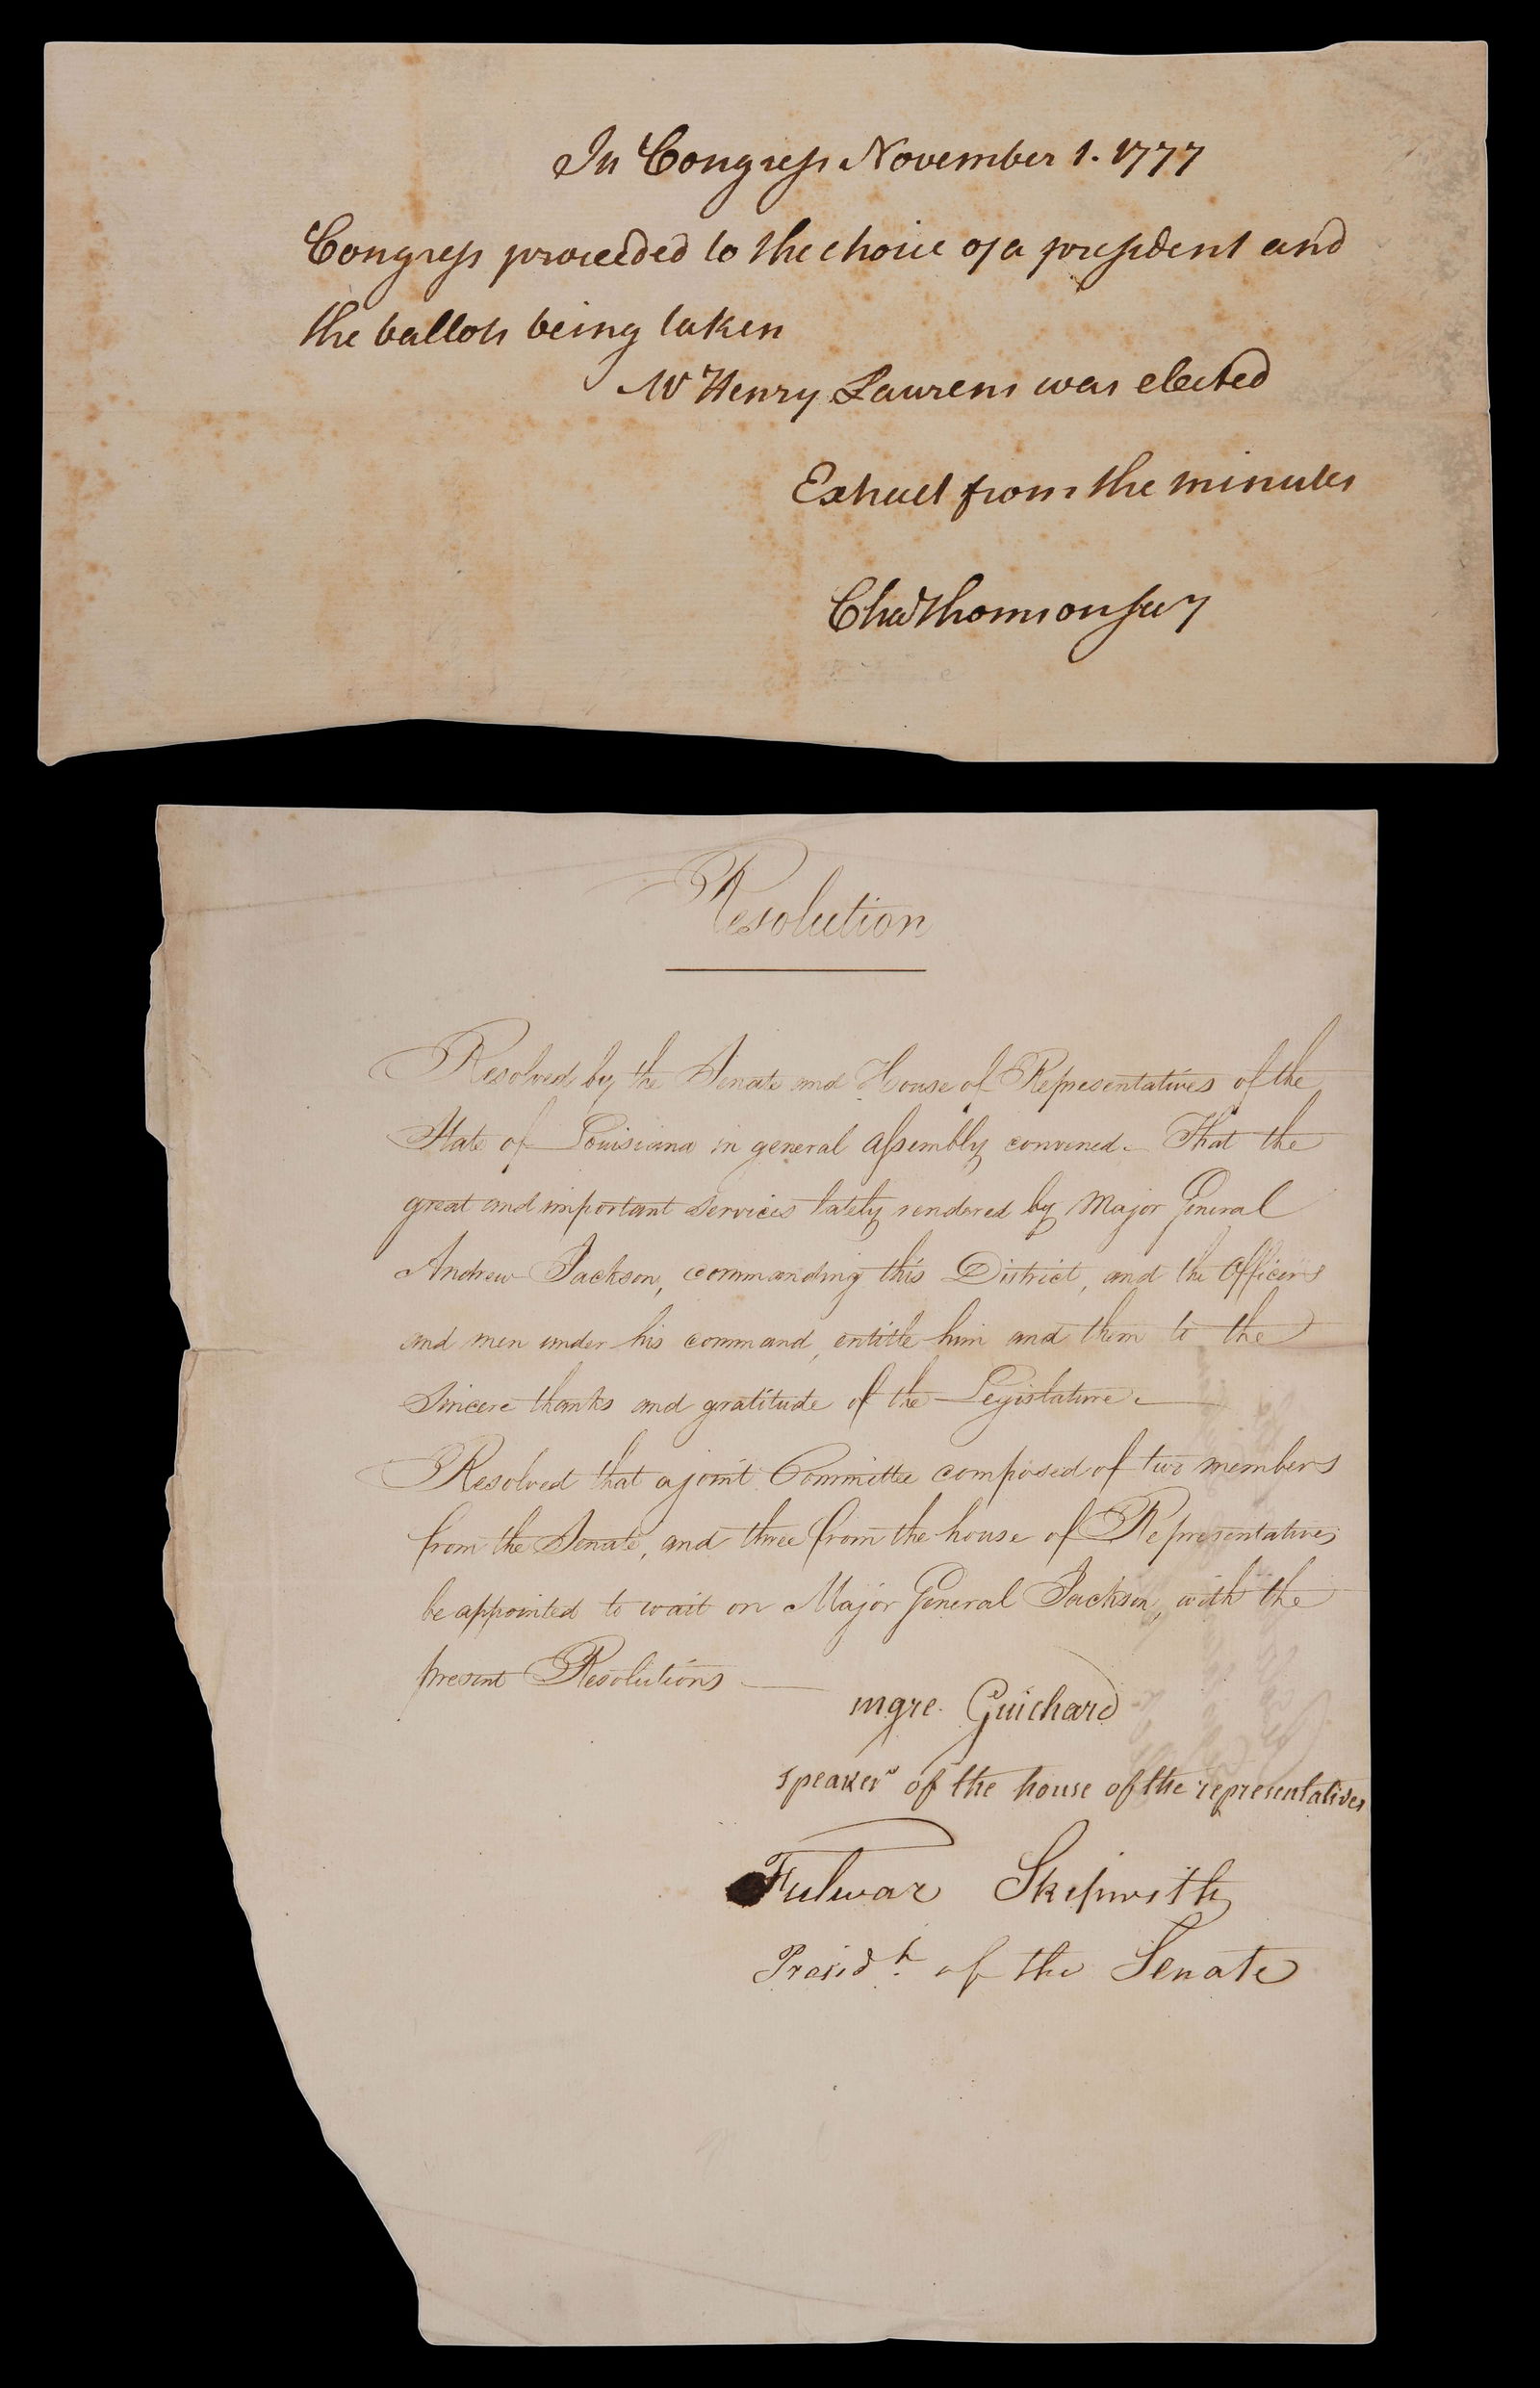 In Congress November 1. 1777
Congress proceeded to the choice of a president and
the ballots being taken
Mr Henry Laurens was elected
Extract from the minutes
Chas Thomson secy
Resolution
Resolved by the Senate and House of Representatives of the
State of Louisiana in general assembly convened. That the
great and important services lately rendered by Major General
Andrew Jackson, commanding this District, and the Officers
and men under his command, entitle him and them to the
sincere thanks and gratitude of the Legislature.
Resolved that a joint Committee composed of two members
from the Senate, and three from the house of Representatives
be appointed to wait on Major General Jackson, with the
present Resolutions
mgre. Guichard
speaker of the house of the representatives
Fulwar Skipwith
Presidt. of the Senate